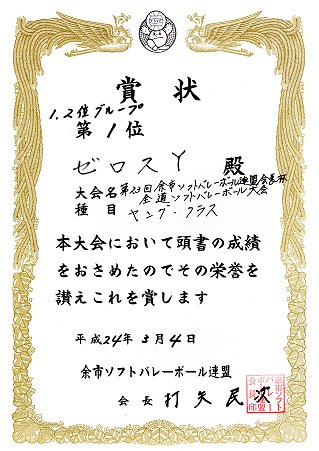 賞状
1.2位グループ
第1位
ゼロスY 殿
大会名 第23回余市ソフトバレーボール連盟会長杯
全道ソフトバレーボール大会
種目 ヤング・クラス
本大会において頭書の成績
をおさめたのでその栄誉を
讃えこれを賞します
平成24年3月4日
余市ソフトバレーボール連盟
会長 打矢民次